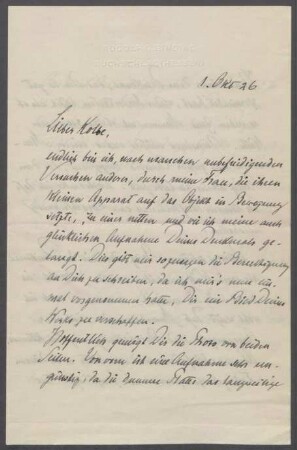 1. Okt 26
Lieber Kolbe,
endlich bin ich, nach manchen unbefriedigenden
Versuchen anderer, durch meine Frau, die ihren
kleinen Apparat auf das Objekt in Bewegung
setzte, zu einer netten und wie ich meine auch
glücklichen Aufnahme Deines Denkmals ge-
langt. Das gibt mir sozusagen die Berechtigung
an Dich zu schreiben, da ich mir's nun ein-
mal vorgenommen hatte, Dir ein Bild Deines
Werks zu verschaffen.
Hoffentlich genügt Dir die Photo von beiden
Seiten. Von vorn ist eine Aufnahme sehr un-
günstig, da die dumme Platte das